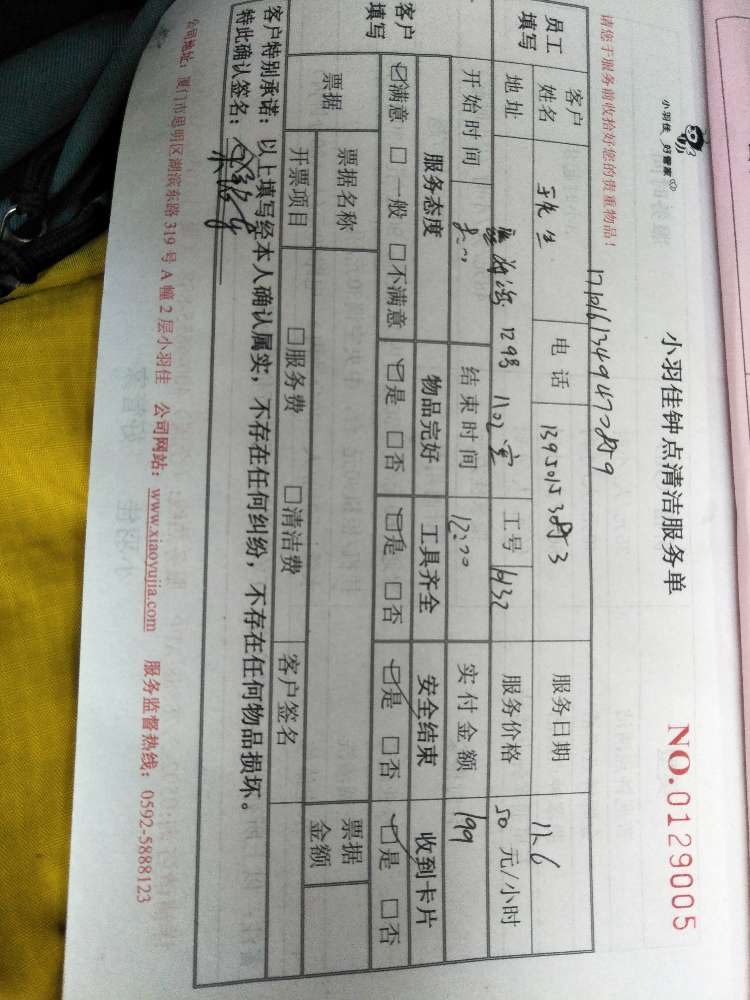 小羽佳 好管家
小羽佳钟点清洁服务单
NO.0129005
请您于服务前收拾好您的贵重物品！
员工填写
客户姓名
电话
服务日期 11.6
地址 129号 1102室
工号
服务价格 50 元/小时
开始时间 8:00
结束时间 12:00
实付金额 199
客户填写
服务态度 物品完好 工具齐全 安全结束 收到卡片
☑满意 □一般 □不满意 ☑是 □否 ☑是 □否 ☑是 □否 ☑是 □否
票据 票据名称 票据金额
开票项目 □服务费 □清洁费 客户签名
客户特别承诺：以上填写经本人确认属实，不存在任何纠纷，不存在任何物品损坏。
特此确认签名：
公司地址：厦门市思明区湖滨东路 319 号 A 幢 2 层小羽佳 公司网站：www.xiaoyujia.com 服务监督热线：0592-5888123